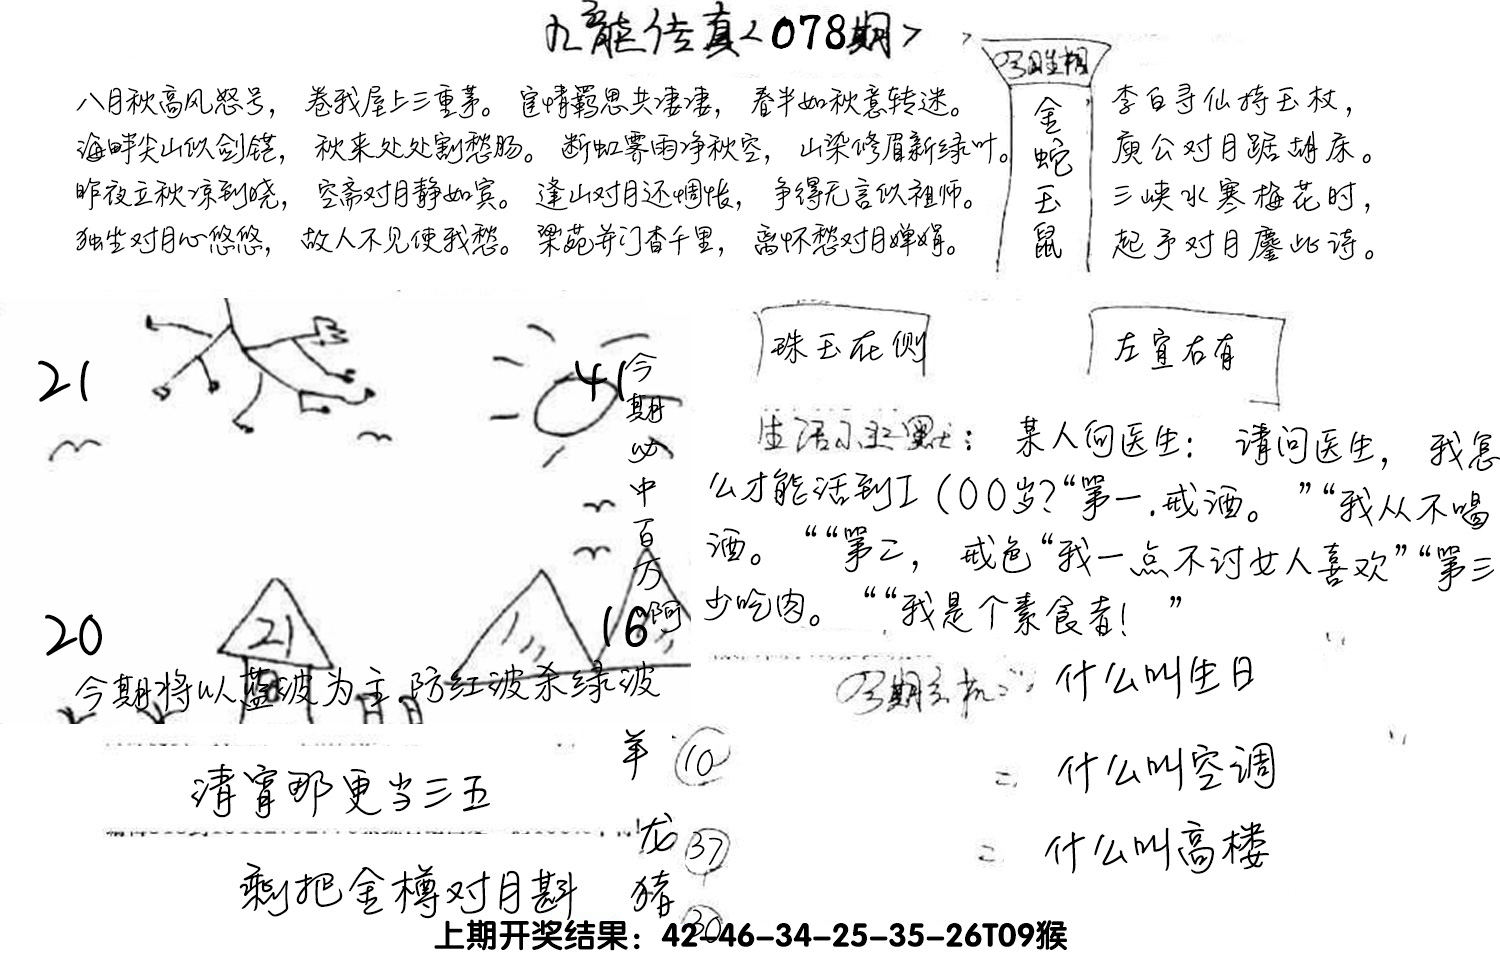 九龍传真<078期>
八月秋高风怒号，卷我屋上三重茅。宦情羁思共凄凄，春半如秋意转迷。
海畔尖山似剑铓，秋来处处割愁肠。断虹霁雨净秋空，山染修眉新绿叶。
昨夜立秋凉到晓，空斋对月静如宾。逢山对月还惆怅，争得无言似祖师。
独坐对月心悠悠，故人不见使我愁。梁苑并门香千里，离怀愁对月婵娟。
今期生相
金
蛇
玉
鼠
李白寻仙持玉杖，
庾公对月踞胡床。
三峡水寒梅花时，
起予对月鏖此诗。
21
41
今期必中百万啊
20
21
16
今期将以蓝波为主.防红波杀绿波
珠玉在侧
左宜右有
生活小幽默：某人问医生：请问医生，我怎
么才能活到I（00岁?“第一.戒酒。”“我从不喝
酒。““第二，戒色“我一点不讨女人喜欢”“第三
少吃肉。““我是个素食者！”
今期玄机：什么叫生日
= 什么叫空调
= 什么叫高楼
清宵那更当三五
剩把金樽对月斟
羊 10
龙 37
猪 30
上期开奖结果：42-46-34-25-35-26T09猴